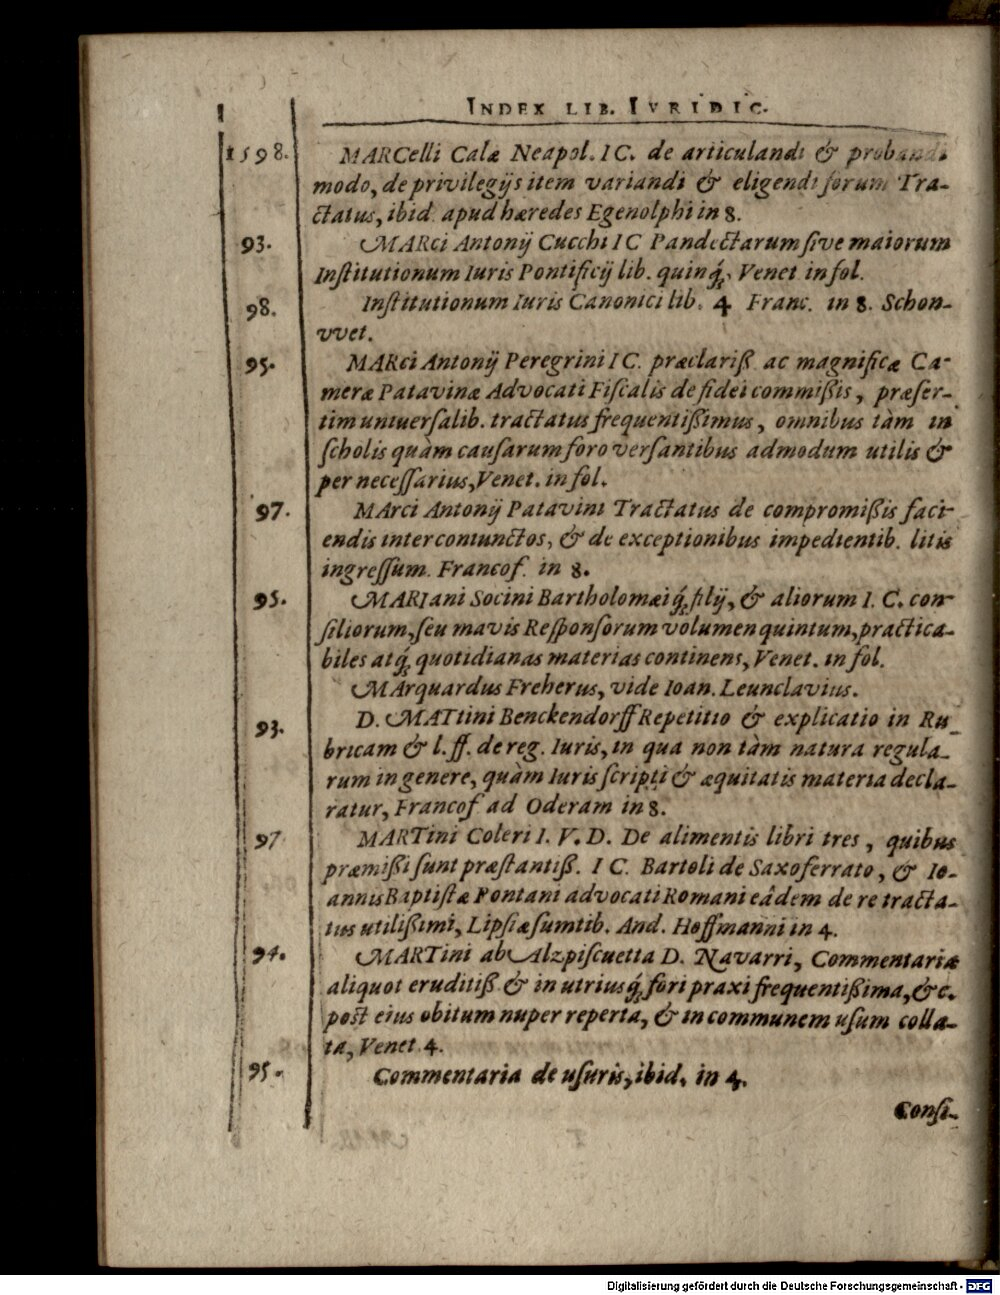 INDEX LIB. IVRIDIC.
1598. MARCelli Calæ Neapol. IC. de articulandi & probandi
modo, de privilegijs item variandi & eligendi forum Tra-
ctatus, ibid. apud hæredes Egenolphi in 8.
93. MARci Antonij Cucchi IC Pandectarum ſive maiorum
Inſtitutionum Iuris Pontificij lib. quinq́;, Venet in fol.
98. Inſtitutionum Iuris Canonici lib. 4 Franc. in 8. Schon-
vvet.
95. MARci Antonij Peregrini IC. præclariß. ac magnificæ Ca-
meræ Patavinæ Advocati Fiſcalis de fidei commißis, præſer-
tim univerſalib. tractatus frequentißimus, omnibus tàm in
ſcholis quàm cauſarum foro verſantibus admodum utilis &
per neceſſarius, Venet. in fol.
97. MArci Antonij Patavini Tractatus de compromißis faci-
endis inter coniunctos, & de exceptionibus impedientib. litis
ingreſſum. Francof. in 8.
95. MARIani Socini Bartholomæi q́; filij, & aliorum I. C. con-
ſiliorum, ſeu mavis Reſponſorum volumen quintum, practica-
biles atq́; quotidianas materias continens, Venet. in fol.
MArquardus Freherus, vide Ioan. Leunclavius.
93. D. MATtini Benckendorff Repetitio & explicatio in Ru-
bricam & l. ff. de reg. Iuris, in qua non tàm natura regula-
rum in genere, quàm Iuris ſcripti & æquitatis materia decla-
ratur, Francof ad Oderam in 8.
97 MARTini Coleri I. V. D. De alimentis libri tres, quibus
præmißi ſunt præſtantiß. IC. Bartoli de Saxoferrato, & Io-
annis Baptiſtæ Pontani advocati Romani eâdem de re tracta-
tus utilißimi, Lipſiæ ſumtib. And. Hoffmanni in 4.
94. MARTini ab Alzpiſcuetta D. Navarri, Commentaria
aliquot eruditiß & in utriusq́; fori praxi frequentißima, &c.
post eius obitum nuper reperta, & in communem uſum colla-
ta, Venet 4.
95. Commentaria de uſuris, ibid. in 4.
Conſi-
Digitalisierung gefördert durch die Deutsche Forschungsgemeinschaft - DFG